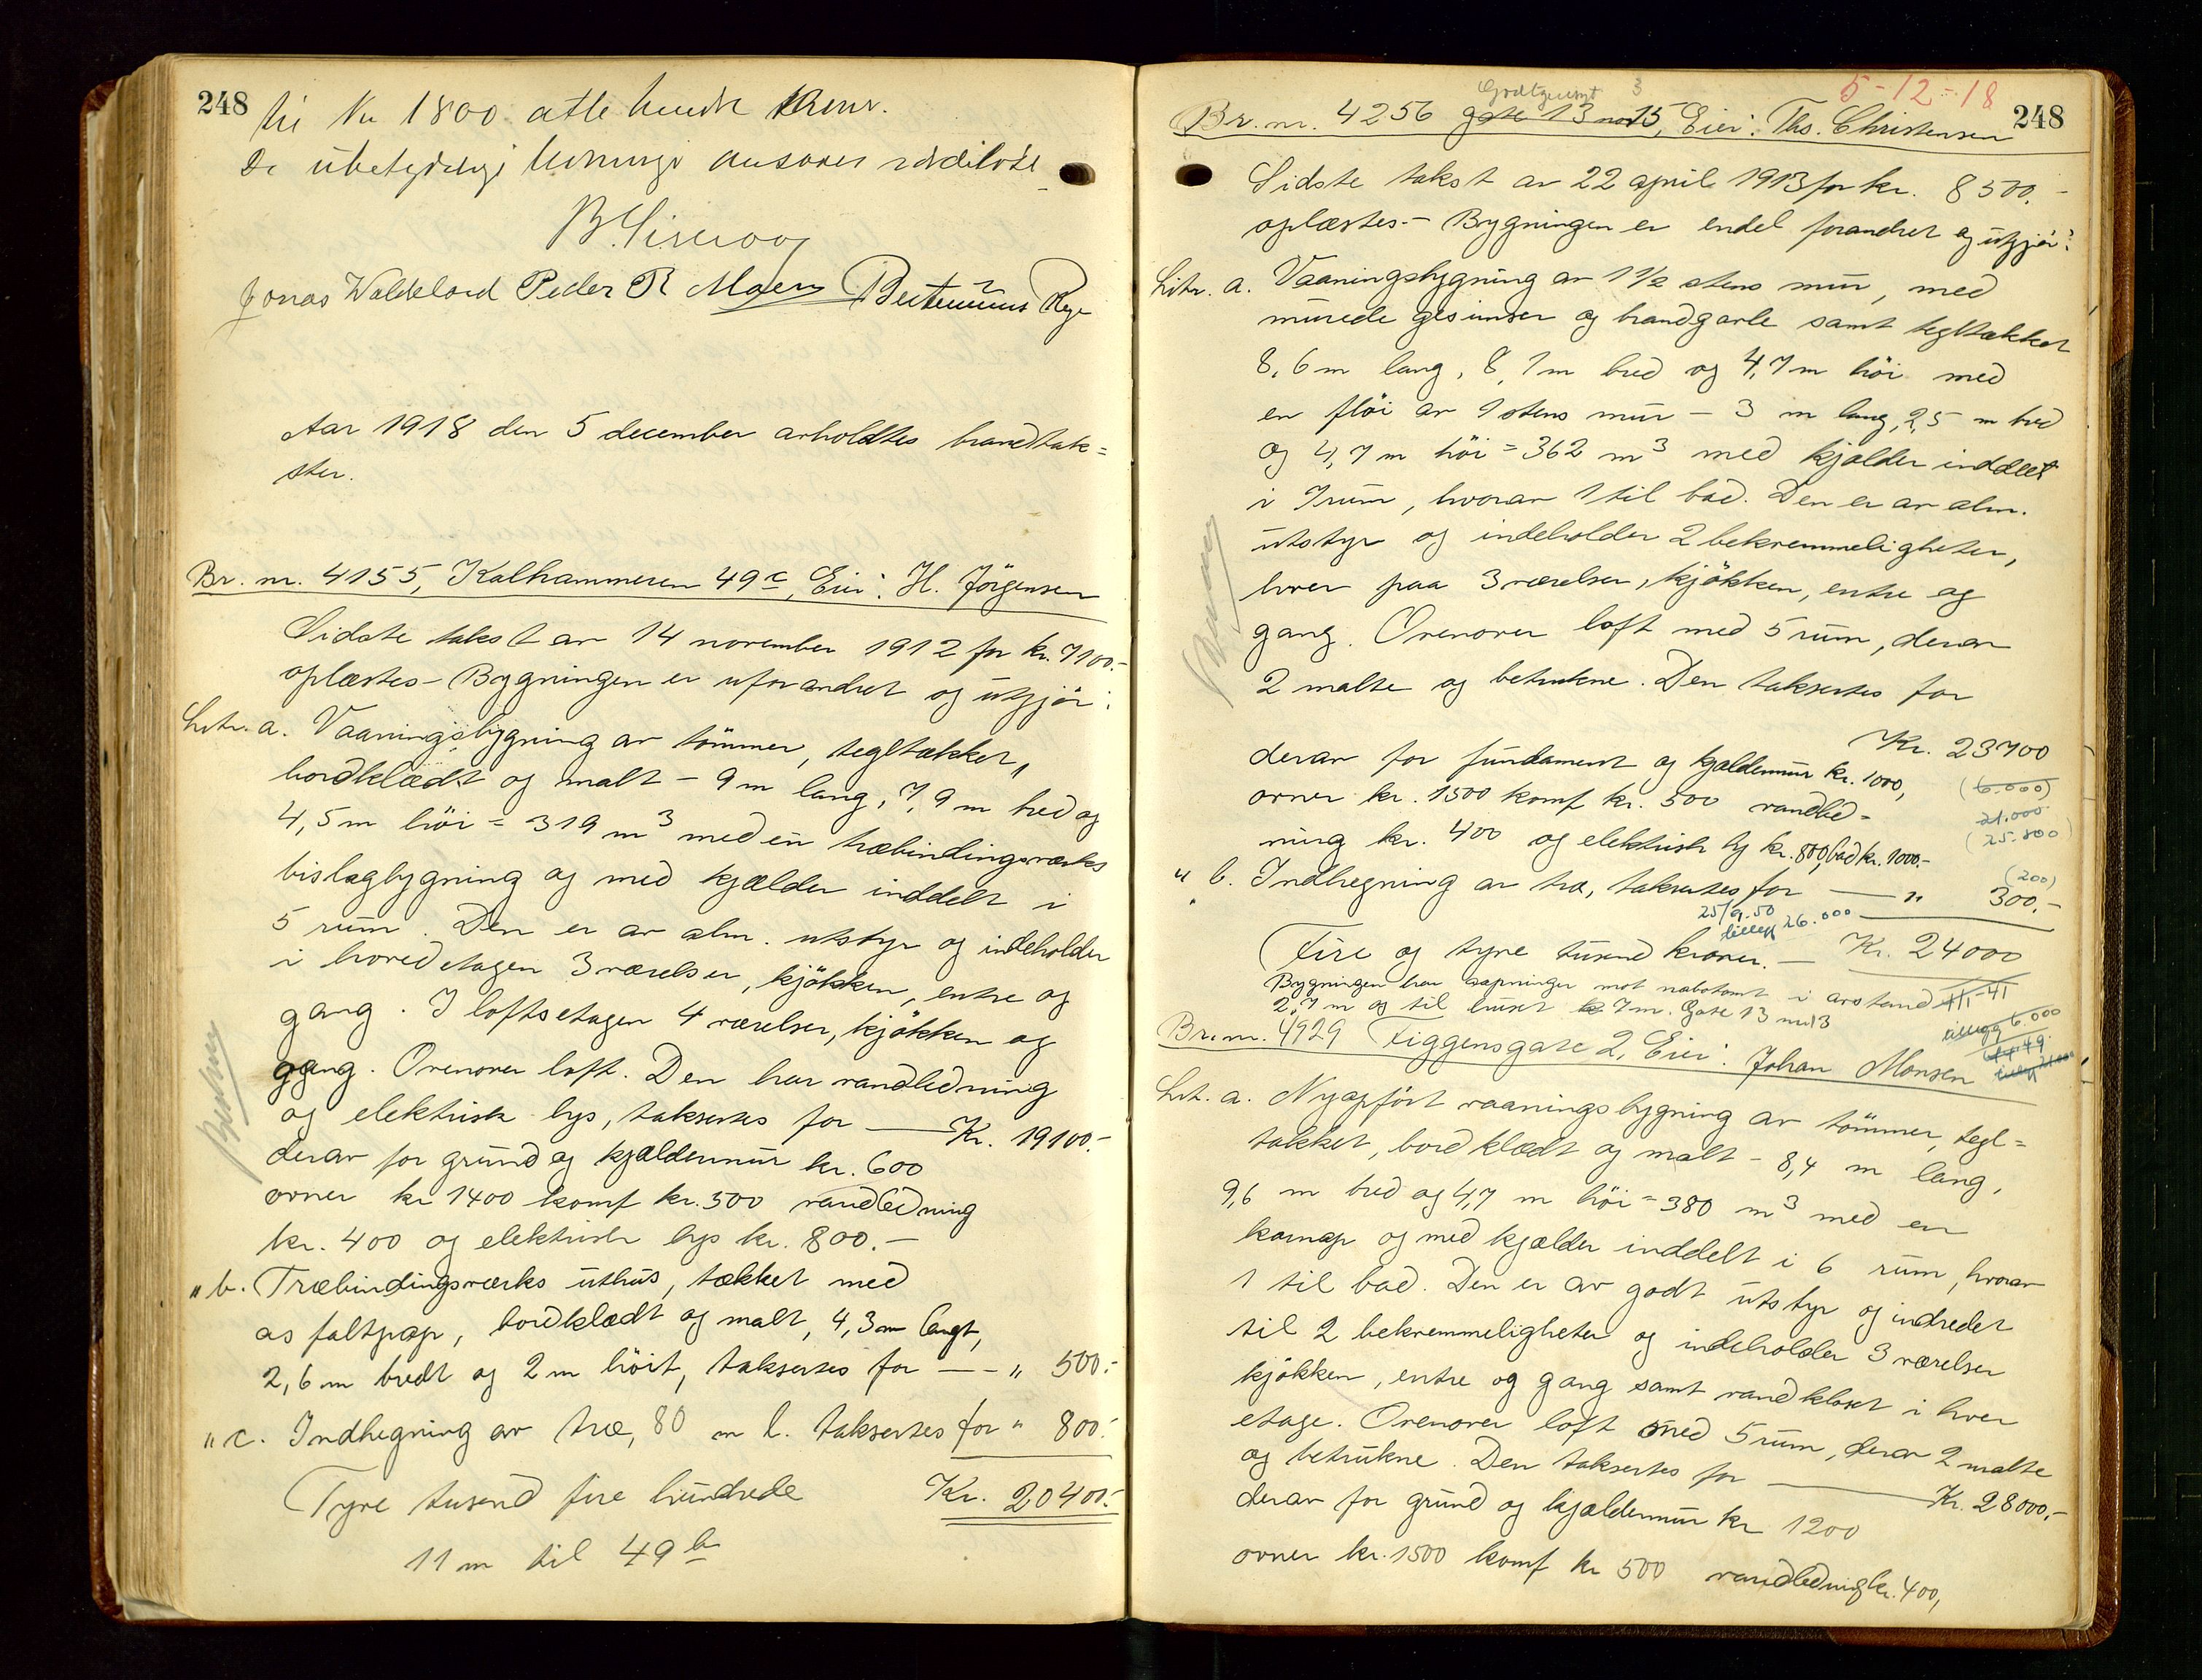 248
til Kr 1800 atte hundr Kroner.
De ubetydelige ansaaes værdiløse
Jonas Waldeland Peder R Moen Rege
Aar 1918 den 5 december avholdtes brandtak=
ster.
Br. nr. 4155, Kalhammeren 49c, Eier: H. Jörgensen
Sidste takst av 14 november 1912 for kr. 7100.-
oplæstes - Bygningen er uforandret og utgjör:
Litr. a. Vaaningsbygning av tömmer, tegltækket,
bordklædt og malt - 9 m lang, 7,9 m bred og
4,5 m höi = 319 m3 med en træbindingsverks
bislagbygning og med kjælder inddelt i
5 rum. Den er av alm. utstyr og indeholder
i hovedetagen 3 værelser, kjökken, entre og
gang. I loftsetagen 4 værelser, kjökken og
gang. Ovenover loft. Den har vandledning
og elektrisk lys, taksertes for — Kr. 19100.-
derav for grund og kjældermur kr. 600
ovner kr 1400 komf kr. 500 vandledning
kr. 400 og elektrisk lys kr. 800.-
" b. Træbindingsværks uthus, tækket med
asfaltpap, bordklædt og malt, 4,3 m langt,
2,6 m bredt og 2 m höit, taksertes for — - " 500.-
" c. Indhegning av træ, 80 m l. taksertes for " 800.-
Tyve tusend fire hundrede Kr. 20400.-
11 m til 49 b
248
5-12-18
Godtgjort 3
Br. nr. 4256 gate 13 no 15, Eier: Ths. Christensen
Sidste takst av 22 april 1913 for kr. 8500.-
oplæstes.- Bygningen er endel forandret og utgjör:
Litr. a. Vaaningsbygning av 1 1/2 stens mur, med
murede gesimser og brandgavle samt tegltækket
8,6 m lang, 8,1 m bred og 4,7 m höi med
en flöi av 1 stens mur - 3 m lang, 2,5 m bred
og 4,7 m höi = 362 m3 med kjælder inddelt
i 7 rum, hvorav 1 til bad. Den er av alm.
utstyr og indeholder 2 bekvemmeligheter,
hver paa 3 værelser, kjökken, entre og
gang. Ovenover loft med 5 rum, derav
2 malte og betrukne. Den taksertes for
Kr. 23700
derav for fundament og kjældermur kr. 1000,
(6.000)
ovner kr. 1500 komf kr. 500 vandled=
21.000
(25.800)
ning kr. 400 og elektrisk lys kr. 800, bad kr. 1000.-
(200)
" b. Indhegning av træ, taksertes for — " 300.-
25/9.50
tillegg 26.000
Fire og tyve tusend kroner. — Kr. 24000
Bygningen har aapninger mot nabotomt i avstand
2,7 m og til huset 7 m. Gate 13 no 13
1/1-41
tillegg 6.000
Br. nr. 4929 Figgensgate 2, Eier: Johan Monsen
Lit. a. Nyopfört vaaningsbygning av tömmer, tegl=
tækket, bordklædt og malt - 8,4 m lang,
9,6 m bred og 4,7 m höi = 380 m3 med en
karnap og med kjælder inddelt i 6 rum, hvorav
1 til bad. Den er av godt utstyr og indredet
til 2 bekvemmeligheter og indeholder 3 værelser
kjökken, entre og gang samt vandkloset i hver
etage. Ovenover loft med 5 rum, derav 2 malte
og betrukne. Den taksertes for — Kr. 28000,-
derav for grund og kjældermur kr 1200
ovner kr. 1500 komf kr 500 vandledning kr. 400,